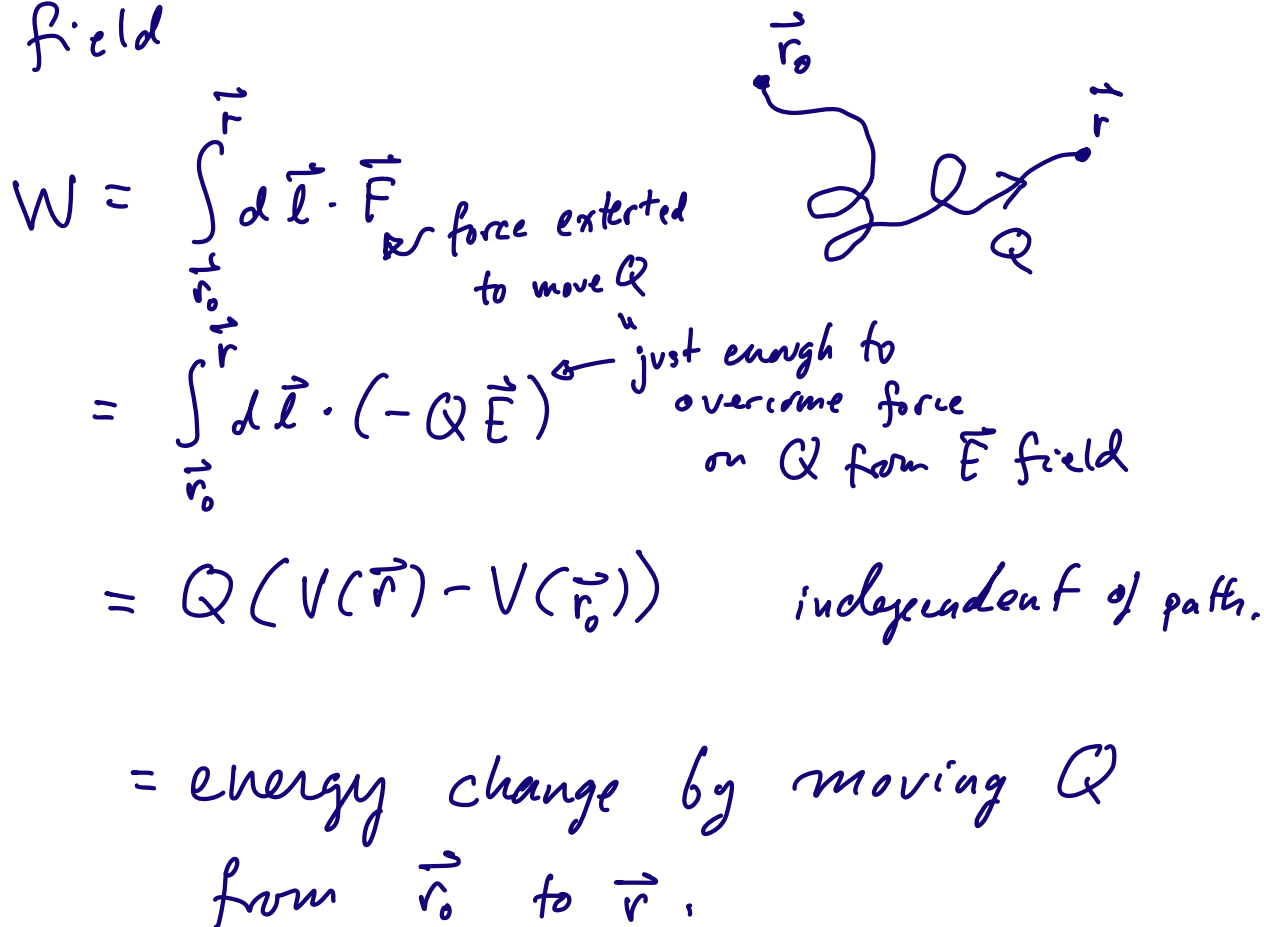 field
r⃗₀
r⃗
Q
W = ∫_{r⃗₀}^{r⃗} d l⃗ · F⃗
force exterted
to move Q
= ∫_{r⃗₀}^{r⃗} d l⃗ · (− Q E⃗)
"just enough to
overcome force
on Q from E⃗ field
= Q ( V(r⃗) − V(r⃗₀)) independent of path.
= energy change by moving Q
from r⃗₀ to r⃗.